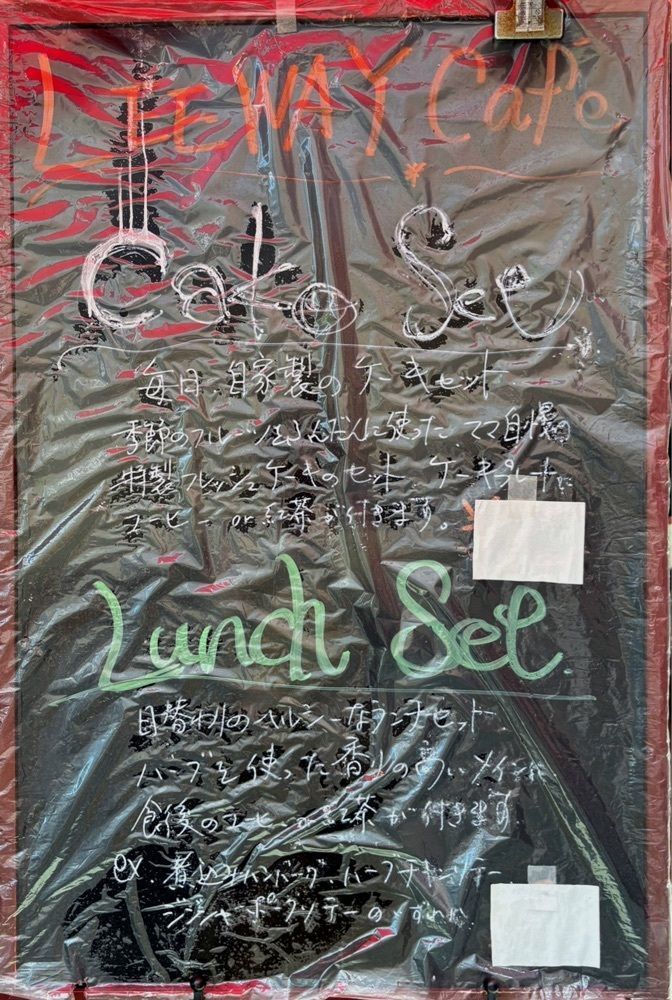 LIEWAY Cafe
Cake Set
毎日、自家製のケーキセット
季節のフルーツをふんだんに使った、ママ自慢の
特製フレッシュケーキのセット、ケーキプレートに
コーヒー or 紅茶が付きます。
Lunch Set.
日替わりのヘルシーなランチセット、
ハーブを使った香りの高いメインに
食後のコーヒー or 紅茶が付きます
ex 煮込みハンバーグ、ハーブチキンソテー
ジンジャーポークソテーのいずれか